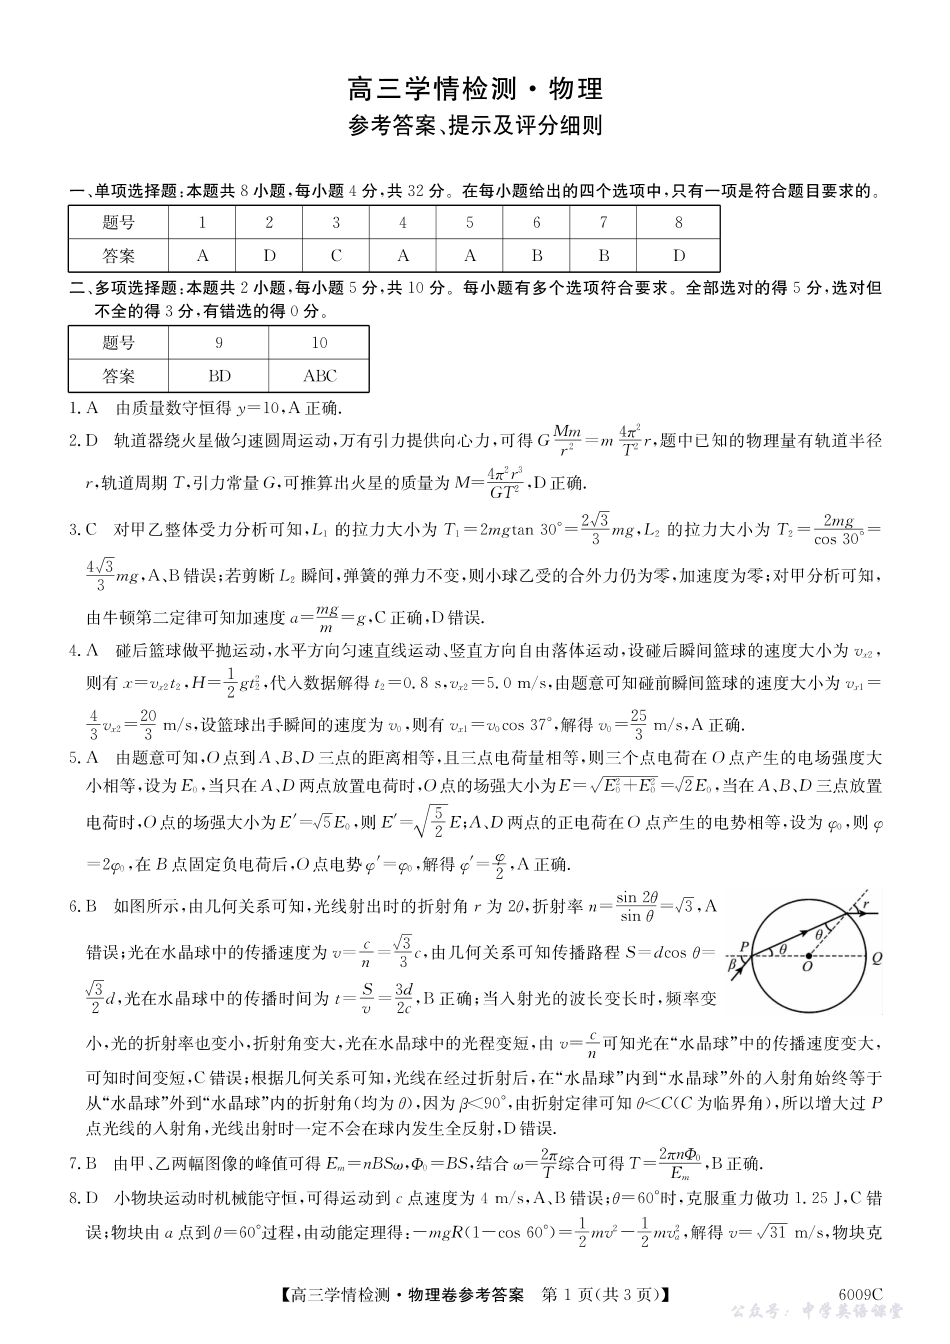 高三学情检测·物理
参考答案、提示及评分细则
一、单项选择题:本题共 8 小题,每小题 4 分,共 32 分。在每小题给出的四个选项中,只有一项是符合题目要求的。
题号 1 2 3 4 5 6 7 8
答案 A D C A A B B D
二、多项选择题:本题共 2 小题,每小题 5 分,共 10 分。每小题有多个选项符合要求。全部选对的得 5 分,选对但
不全的得 3 分,有错选的得 0 分。
题号 9 10
答案 BD ABC
1. A 由质量数守恒得 y=10,A 正确.
2. D 轨道器绕火星做匀速圆周运动,万有引力提供向心力,可得 G\frac{Mm}{r^2}=m\frac{4π^2}{T^2}r,题中已知的物理量有轨道半径
r,轨道周期 T,引力常量 G,可推算出火星的质量为 M=\frac{4π^2r^3}{GT^2},D 正确.
3. C 对甲乙整体受力分析可知,L₁ 的拉力大小为 T₁=2mgtan 30°=\frac{2√3}{3}mg,L₂ 的拉力大小为 T₂=\frac{2mg}{cos 30°}=
\frac{4√3}{3}mg,A、B 错误;若剪断 L₂ 瞬间,弹簧的弹力不变,则小球乙受的合外力仍为零,加速度为零;对甲分析可知,
由牛顿第二定律可知加速度 a=\frac{mg}{m}=g,C 正确,D 错误.
4. A 碰后篮球做平抛运动,水平方向匀速直线运动、竖直方向自由落体运动,设碰后瞬间篮球的速度大小为 v_{x2},
则有 x=v_{x2}t₂,H=\frac{1}{2}gt₂²,代入数据解得 t₂=0.8 s,v_{x2}=5.0 m/s,由题意可知碰前瞬间篮球的速度大小为 v_{x1}=
\frac{4}{3}v_{x2}=\frac{20}{3} m/s,设篮球出手瞬间的速度为 v₀,则有 v_{x1}=v₀cos 37°,解得 v₀=\frac{25}{3} m/s,A 正确.
5. A 由题意可知,O 点到 A、B、D 三点的距离相等,且三点电荷量相等,则三个点电荷在 O 点产生的电场强度大
小相等,设为 E₀,当只在 A、D 两点放置电荷时,O 点的场强大小为 E=\sqrt{E₀²+E₀²}=√2E₀,当在 A、B、D 三点放置
电荷时,O 点的场强大小为 E′=√5E₀,则 E′=\sqrt{\frac{5}{2}}E;A、D 两点的正电荷在 O 点产生的电势相等,设为 φ₀,则 φ
=2φ₀,在 B 点固定负电荷后,O 点电势 φ′=φ₀,解得 φ′=\frac{φ}{2},A 正确.
6. B 如图所示,由几何关系可知,光线射出时的折射角 r 为 2θ,折射率 n=\frac{sin 2θ}{sin θ}=√3,A
错误;光在水晶球中的传播速度为 v=\frac{c}{n}=\frac{√3}{3}c,由几何关系可知传播路程 S=dcos θ=
\frac{√3}{2}d,光在水晶球中的传播时间为 t=\frac{S}{v}=\frac{3d}{2c},B 正确;当入射光的波长变长时,频率变
P β θ O θ r Q
小,光的折射率也变小,折射角变大,光在水晶球中的光程变短,由 v=\frac{c}{n}可知光在“水晶球”中的传播速度变大,
可知时间变短,C 错误;根据几何关系可知,光线在经过折射后,在“水晶球”内到“水晶球”外的入射角始终等于
从“水晶球”外到“水晶球”内的折射角(均为 θ),因为 β<90°,由折射定律可知 θ<C(C 为临界角),所以增大过 P
点光线的入射角,光线出射时一定不会在球内发生全反射,D 错误.
7. B 由甲、乙两幅图像的峰值可得 E_m=nBSω,Φ₀=BS,结合 ω=\frac{2π}{T}综合可得 T=\frac{2πnΦ₀}{E_m},B 正确.
8. D 小物块运动时机械能守恒,可得运动到 c 点速度为 4 m/s,A、B 错误;θ=60°时,克服重力做功 1.25 J,C 错
误;物块由 a 点到 θ=60°过程,由动能定理得:−mgR(1−cos 60°)=\frac{1}{2}mv²−\frac{1}{2}mv_a²,解得 v=√31 m/s,物块克
【高三学情检测·物理卷参考答案 第 1 页(共 3 页)】 6009C
公众号:中学英语课堂